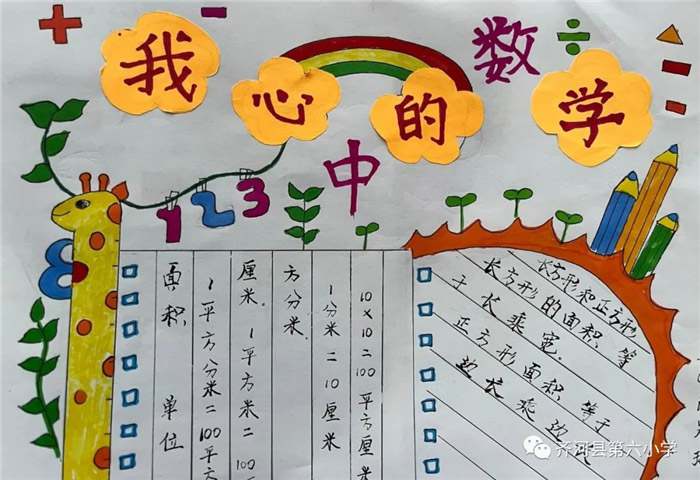 我心中的数学
1 2 3
8
面积 单位
1平方分米=100平方
厘米.1平方米=100
方分米.
1分米=10厘米
10×10=100平方厘米
长方形和正方形
长方形的面积等
于长乘宽.
正方形面积等于
边长乘边
齐河县第六小学